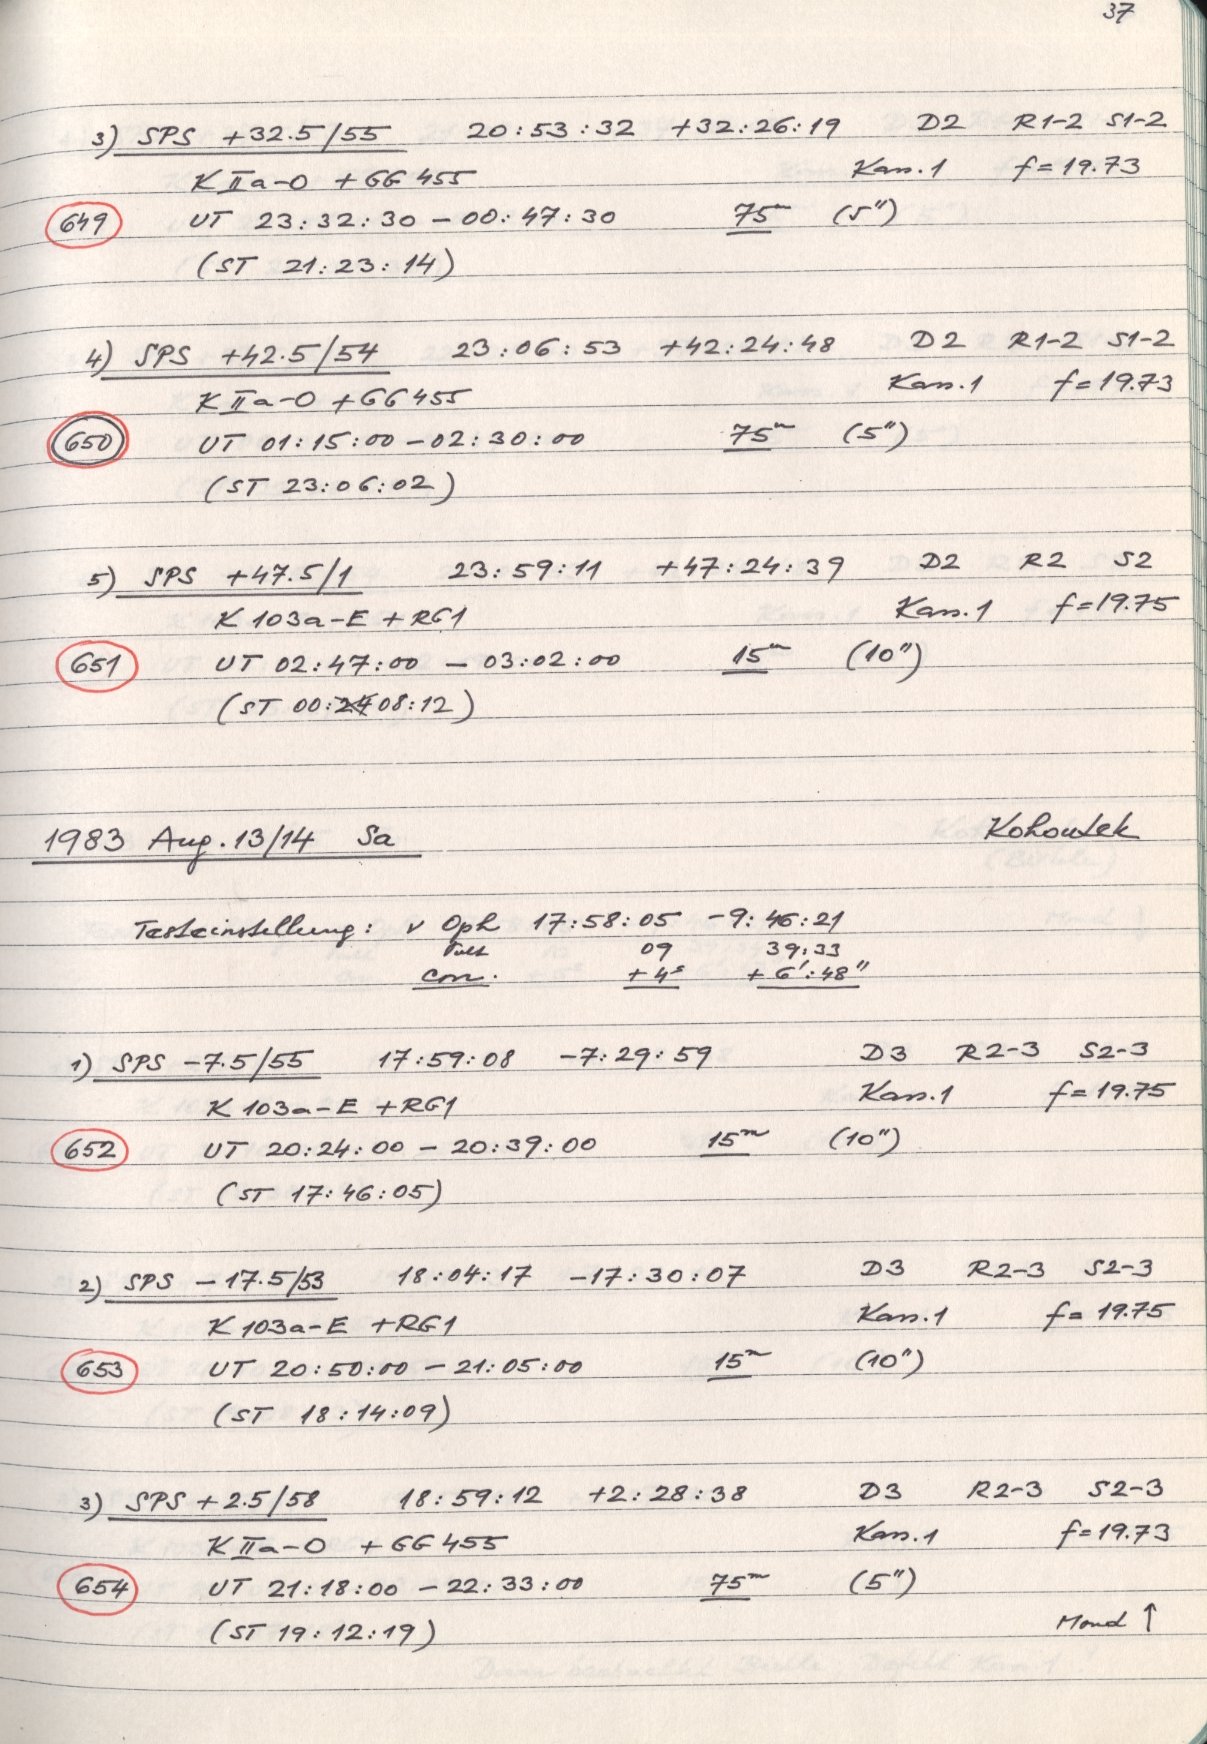 37
3) SPS +32.5/55 20:53:32 +32:26:19 D2 R1-2 S1-2
K IIa-O +GG 455 Kass.1 f=19.73
649 UT 23:32:30 – 00:47:30 75m (5")
(ST 21:23:14)
4) SPS +42.5/54 23:06:53 +42:24:48 D2 R1-2 S1-2
K IIa-O +GG455 Kass.1 f=19.73
650 UT 01:15:00 – 02:30:00 75m (5")
(ST 23:06:02)
5) SPS +47.5/1 23:59:11 +47:24:39 D2 R2 S2
K 103a-E +RG1 Kass.1 f=19.75
651 UT 02:47:00 – 03:02:00 15m (10")
(ST 00:24 08:12)
1983 Aug. 13/14 Sa Kohoutek
Testeinstellung: ν Oph 17:58:05 -9:46:21
Pult 09 39:33
corr. +4s +6':48"
1) SPS -7.5/55 17:59:08 -7:29:59 D3 R2-3 S2-3
K 103a-E +RG1 Kass.1 f=19.75
652 UT 20:24:00 – 20:39:00 15m (10")
(ST 17:46:05)
2) SPS -17.5/53 18:04:17 -17:30:07 D3 R2-3 S2-3
K 103a-E +RG1 Kass.1 f=19.75
653 UT 20:50:00 – 21:05:00 15m (10")
(ST 18:14:09)
3) SPS +2.5/58 18:59:12 +2:28:38 D3 R2-3 S2-3
K IIa-O +GG 455 Kass.1 f=19.73
654 UT 21:18:00 – 22:33:00 75m (5")
(ST 19:12:19) Mond ↑